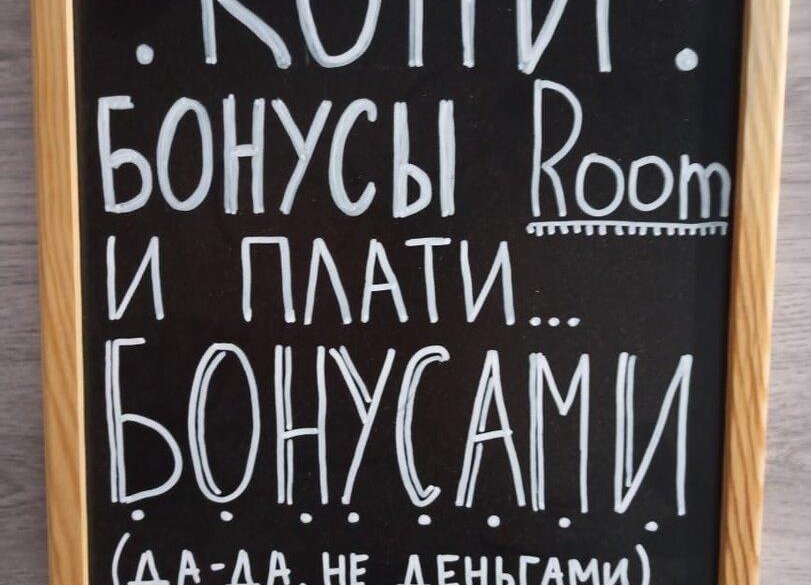 . КОПИ .
БОНУСЫ Room
И ПЛАТИ...
БОНУСАМИ
(ДА-ДА, НЕ ДЕНЬГАМИ)